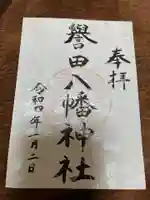 奉拝
誉田八幡神社
令和四年一月二日